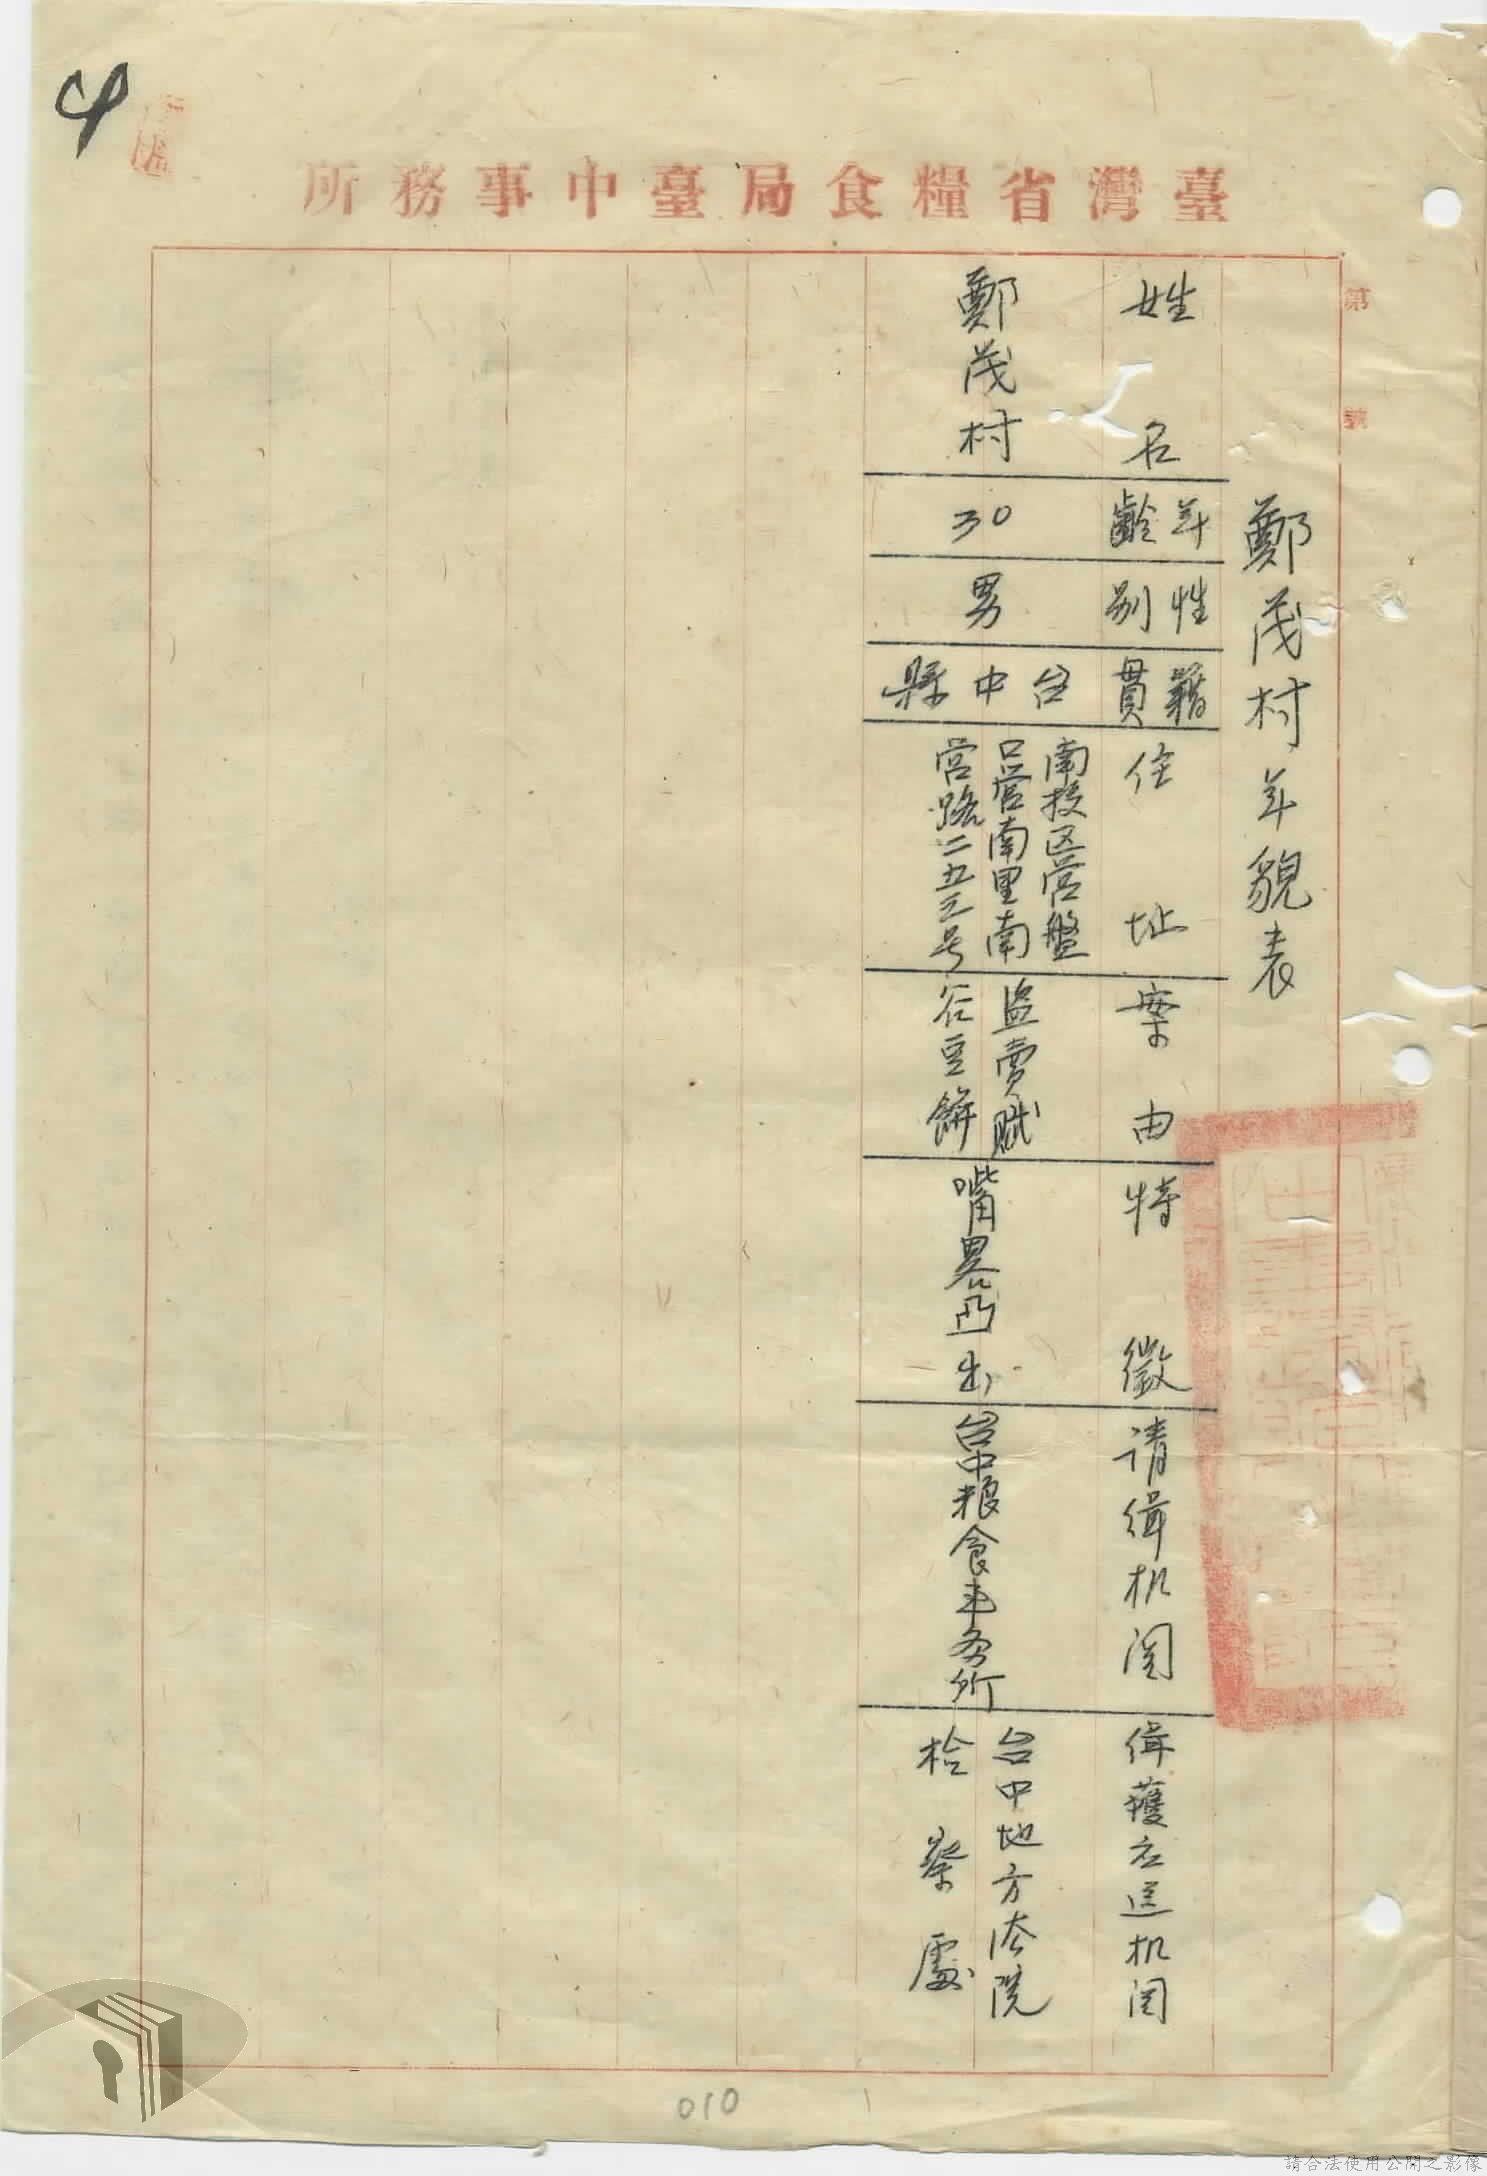 臺灣省糧食局臺中事務所
第 號
鄭茂村年貌表
姓名
年齡
性別
籍貫
住址
案由
特徵
请缉机関
缉獲应送机関
鄭茂村
30
男
台中縣
南投区营盤
口营南里南
营路二五三号
盗賣賦
谷豆餅
嘴畧凸出
台中粮食事务所
台中地方法院
检察處
010
請合法使用公開之影像